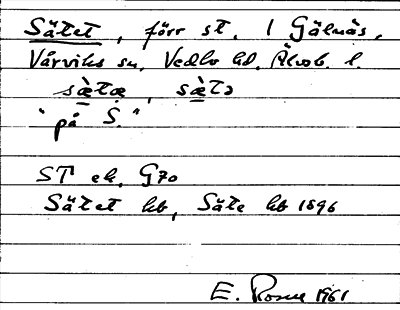 Sätet, förr st. 1 Gälnäs,
Vårviks sn. Vedbo hd. Älvsb. l.
sæ̀tæ, sæ̀tə
"på S."
ST ek. G70
Sätet hb, Säte hb 1896
E. Rosne 1961